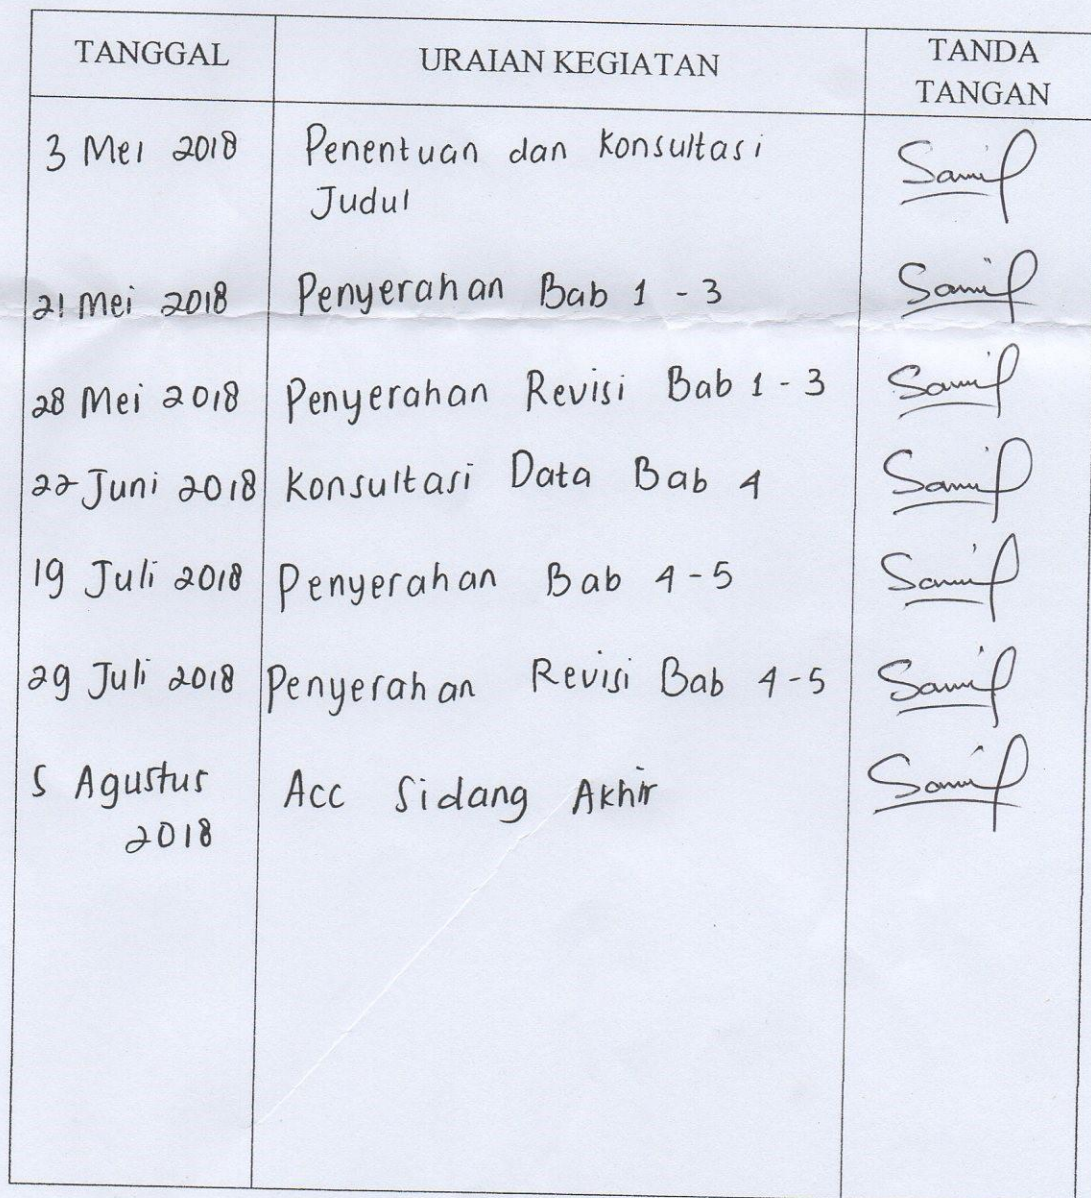 TANGGAL URAIAN KEGIATAN TANDA
TANGAN
3 Mei 2018 Penentuan dan Konsultasi
Judul
21 Mei 2018 Penyerahan Bab 1 - 3
28 Mei 2018 Penyerahan Revisi Bab 1 - 3
22 Juni 2018 Konsultasi Data Bab 4
19 Juli 2018 Penyerahan Bab 4 - 5
29 Juli 2018 Penyerahan Revisi Bab 4 - 5
5 Agustus Acc Sidang Akhir
2018